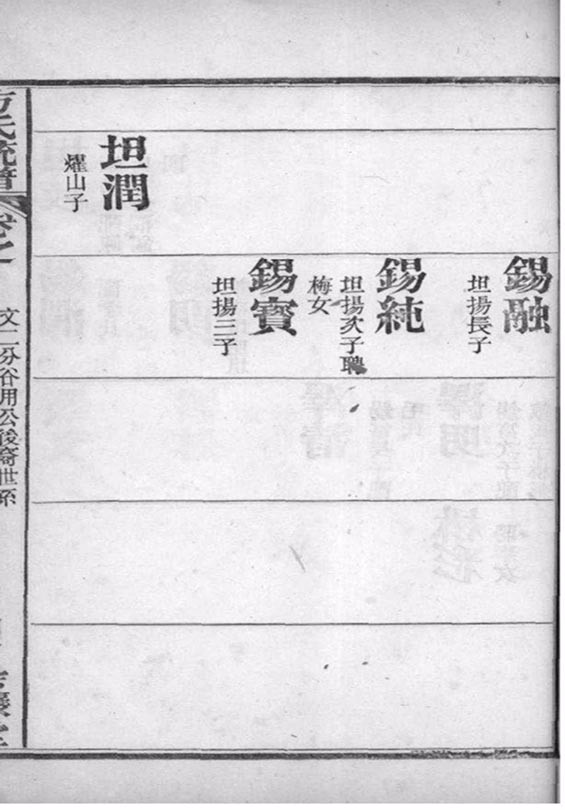 錫融
坦揚長子
錫純
坦揚次子聘
梅女
錫寶
坦揚三子
坦潤
燿山子
方氏統譜
卷之一
文二分谷用公後裔世系